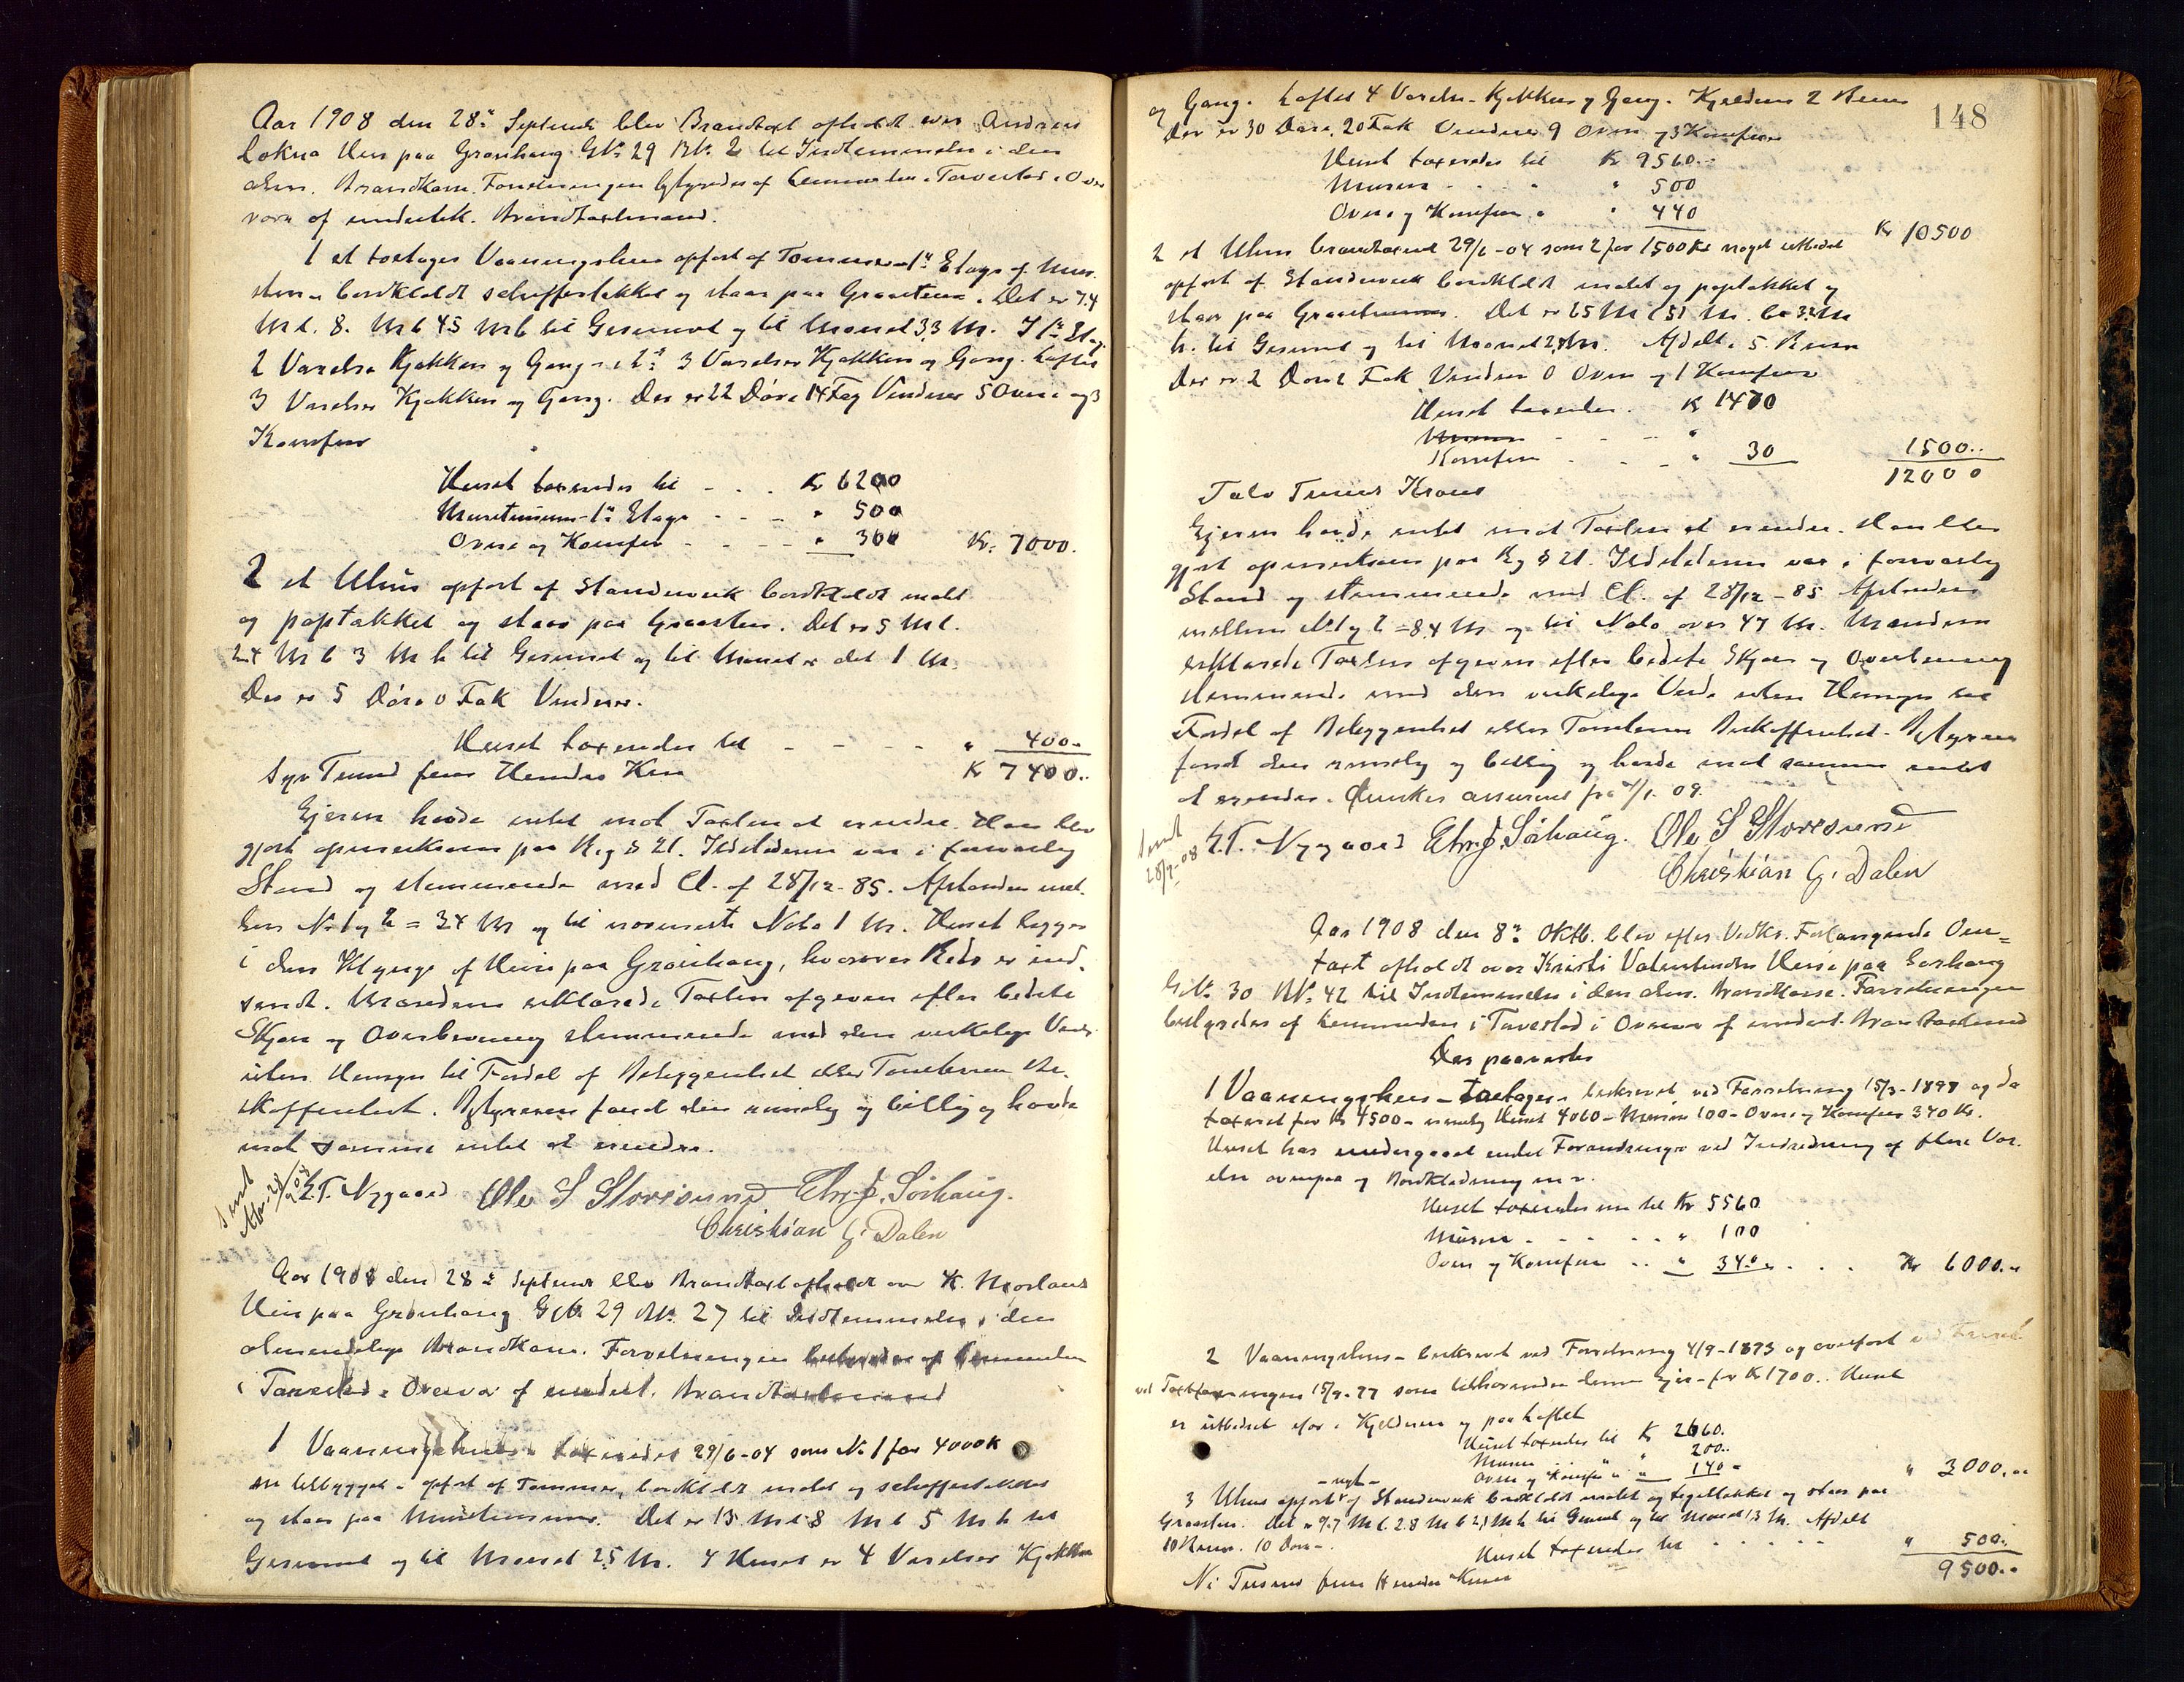 Aar 1908 den 28de Septembr blev Brandtaxt afholdt over Andreas
Lokna Hus paa Grønhaug G.No. 29 B.No. 2 til Indlemmelse i den
alm. Brandkasse. Forretningen bestyredes af Lensmanden i Torvestad i Over
vær af undertek. Brandtaxtmænd.
1 et toetages Vaaningshus opført af Tømmer - 1ste Etage af Mur
sten - bordklædt schiffertækket og staar paa Graasten. Det er 7.4
M l. 8. M b 4.5 M h til Gesimset og til Mønet 3.3 M. I 1ste Etag.
2 Værelser Kjøkken og Gang - i 2den 3 Værelser Kjøkken og Gang. Loftet
3 Værelser Kjøkken og Gang. Der er 22 Døre 14 Fag Vinduer 5 Ovne og 3
Komfur
Huset taxeredes til - - - Kr 6200
Murstenen - 1ste Etage - - - " 500
Ovne og Komfur - - - - " 300 Kr. 7000.
2 et Uhus opført af Standerverk bordklædt malt
og paptækket og staar paa Graasten. Det er 5 M l.
2.4 M b 3 M h til Gesimset og til Mønet er det 1 M.
Der er 5 Døre 0 Fak Vinduer.
Huset taxeredes til - - - - " 400-
Syv Tusind fire Hundre Kro Kr 7400..
Ejeren havde intet mod Taxten at erindre. Han blev
gjort opmerksom paa Rg § 21. Ildstederne var i forsvarlig
Stand og stemmende med C. af 28/12-85. Afstanden mel-
lem No 1 og 2 = 34 M og til nærmeste Nabo 1 M. Huset ligger
i den Klynge af Huse paa Grønhaug, hvorover Rids er ind-
sendt. Mændene erklærede Taxten afgiven efter bedste
Skjøn og Overbevisning stemmende med den virkelige Værdi
uden Hensyn til Fordel af Beliggenhed eller Tomternes Be-
skaffenhed. Bestyreren fandt den rimelig og billig og havde
mod samme intet at erindre.
E.T. Nygaard Ole S Storesund Chr. J. Sørhaug.
Christian G. Dalen
Aar 1908 den 28de Septembr blev Brandtaxt afholdt over K. Morlands
Hus paa Grønhaug G.No. 29 B.No. 27 til Indlemmelse i den
almindelige Brandkasse. Forretningen bestyredes af Lensmanden
i Torvestad i Overvær af undert. Brandtaxtmænd
1 Vaaningshus - taxeredes 29/6-04 som No 1 for 4000 K
er tilbygget - opført af Tømmer, bordklædt malet og schiffertækket
og staar paa Murstensmur. Det er 13 M l 8 M b 5 M h til
Gesimset og til Mønet 2.5 M. I Huset er 4 Værelser Kjøkken
148
og Gang. Loftet 4 Værelser Kjøkken og Gang. Kjelderen 2 Rum
Der er 30 Døre, 20 Fak Vinduer 9 Ovne og 3 Komfur
Huset taxeredes til Kr 9560..
Muren - - " " 500
Ovne og Komfur " " 440
Kr 10500
2 et Uhus brandtaxeret 29/6-04 som 2 for 1500 Kr noget utbedret
opført af Standerverk bordklædt malet og paptækket og
staar paa Graastensmur. Det er 6.5 M l 5.1 M. b 3.2 M
h. til Gesimset og til Mønet 2.8 M. Afdelt i 5 Rum
Der er 2 Døre 2 Fak Vinduer 0 Ovne og 1 Komfur
Huset taxeredes - K 1470
Komfur - - - " 30 1500..
12000
Tolv Tusind Kroner
Ejeren havde intet mod Taxten at erindre. Han blev
gjort opmerksom paa Rg § 21. Ildstederne var i forsvarlig
Stand og stemmende med C. af 28/12-85. Afstanden
mellem No 1 og 2 = 8.4 M og til Nabo over 47 M. Mændene
erklærede Taxten afgiven efter bedste Skjøn og Overbevisning
stemmende med den virkelige Værdi uten Hensyn til
Fordel af Beliggenhed eller Tomternes Beskaffenhed. Bestyreren
fandt den rimelig og billig og havde mod samme intet
at erindre. Ønskes assurert fra 1/1. 09.
E.T. Nygaard Chr. J. Sørhaug. Ole S Storesund
Christian G. Dalen
Aar 1908 den 8de Oktb. blev efter Vedk. Forlangende Om-
taxt afholdt over Kristi Valentinsdtr Huse paa Sørhaug
G.No. 30 B.No. 42 til Indlemmelse i den alm. Brandkasse. Forretningen
bestyredes af Lensmanden i Torvestad i Overvær af undert. Brandtaxtmænd
Der paavistes
1 Vaaningshus - toetages - beskrevet ved Forretning 15/9-1897 og da
taxeret for Kr 4500 - nemlig Huset 4060 - Muren 100 - Ovne og Komfur 340 Kr.
Huset har undergaaet endel Forandringer ved Indredning af flere Vær.
elser ovenpaa og Bordklædning m.v.
Huset taxeredes nu til Kr 5560
Muren - - - - - " 100
Ovne og Komfur - - " 340 - - - Kr 6000..
2 Vaaningshus - beskrevet ved Forretning 4/9-1893 og overført
ved Taxtforretningen 15/9-97 som tilhørende denne Ejer - for Kr 1700.. Huset
er utbedret efter i Kjelderen og paa Loftet
Huset taxeredes til Kr 2660.
Muren " " 200..
Ovne og Komfur " " 140 - " 3000...
- nyt -
3 Uhus opført af Standerverk bordklædt malet og tegeltækket og staar paa
Graasten. Det er 9.7 M l. 2.8 M b 2.1 M h til Gesimset og til Mønet 1.3 M. Afdelt
10 Rum. 10 Døre -.
Huset taxeredes til - - - - " 500..
Ni Tusind fem Hundre Kroner 9500..